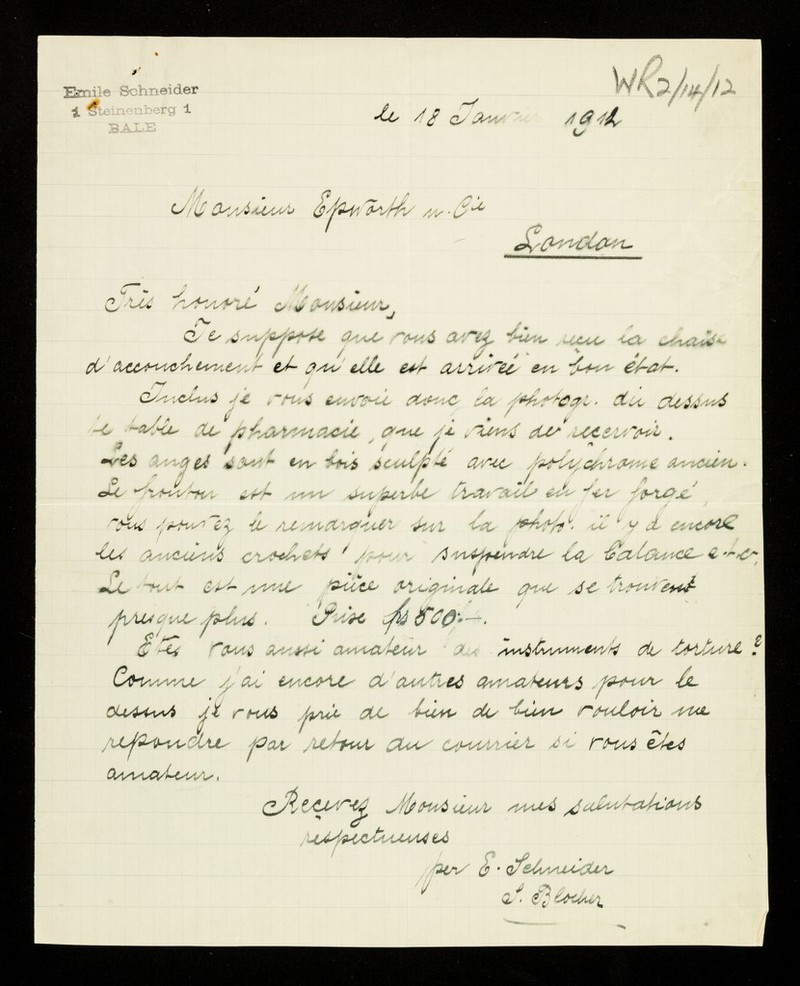 Emile Schneider
1 Steinenberg 1
BALE
WR2/14/12
le 18 Janvier 1912
Monsieur Epworth u. Cie
London
Très honoré Monsieur,
Je suppose que vous avez bien recu la chaise
d'accouchement et qu'elle est arrivée en bon état.
Inclus je vous envoie donc la photogr. du dessus
de table de pharmacie, que je viens de recevoir.
Les anges sont en bois sculpté avec polychrome ancien.
Le fronton est un superbe travail en fer forgé,
vous pouvez le remarquer sur la photo. il y a encore
les anciens crochets pour suspendre la balance etc.
Le tout est une pièce originale que se trouvent
presque plus. Prise frs 500.-.
Etes vous aussi amateur des instruments de torture?
Comme j'ai encore d'autres amateurs pour le
dessus je vous prie de bien de bien vouloir me
repondre par retour du courrier si vous êtes
amateur.
Recevez Monsieur mes salutations
respectueuses
per E. Schneider
S. Blocher